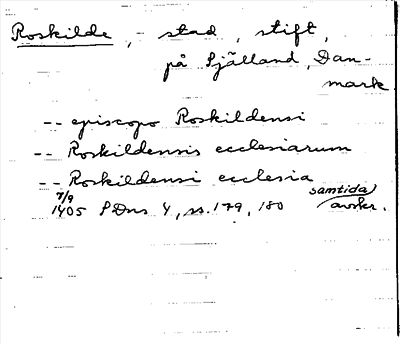 Roskilde, - stad, stift,
på Själland, Dan-
mark
-- episcopo Roskildensi
-- Roskildensis ecclesiarum
-- Roskildensi ecclesia
7/9 1405 SDns 4, ss. 179, 180 samtida avskr.